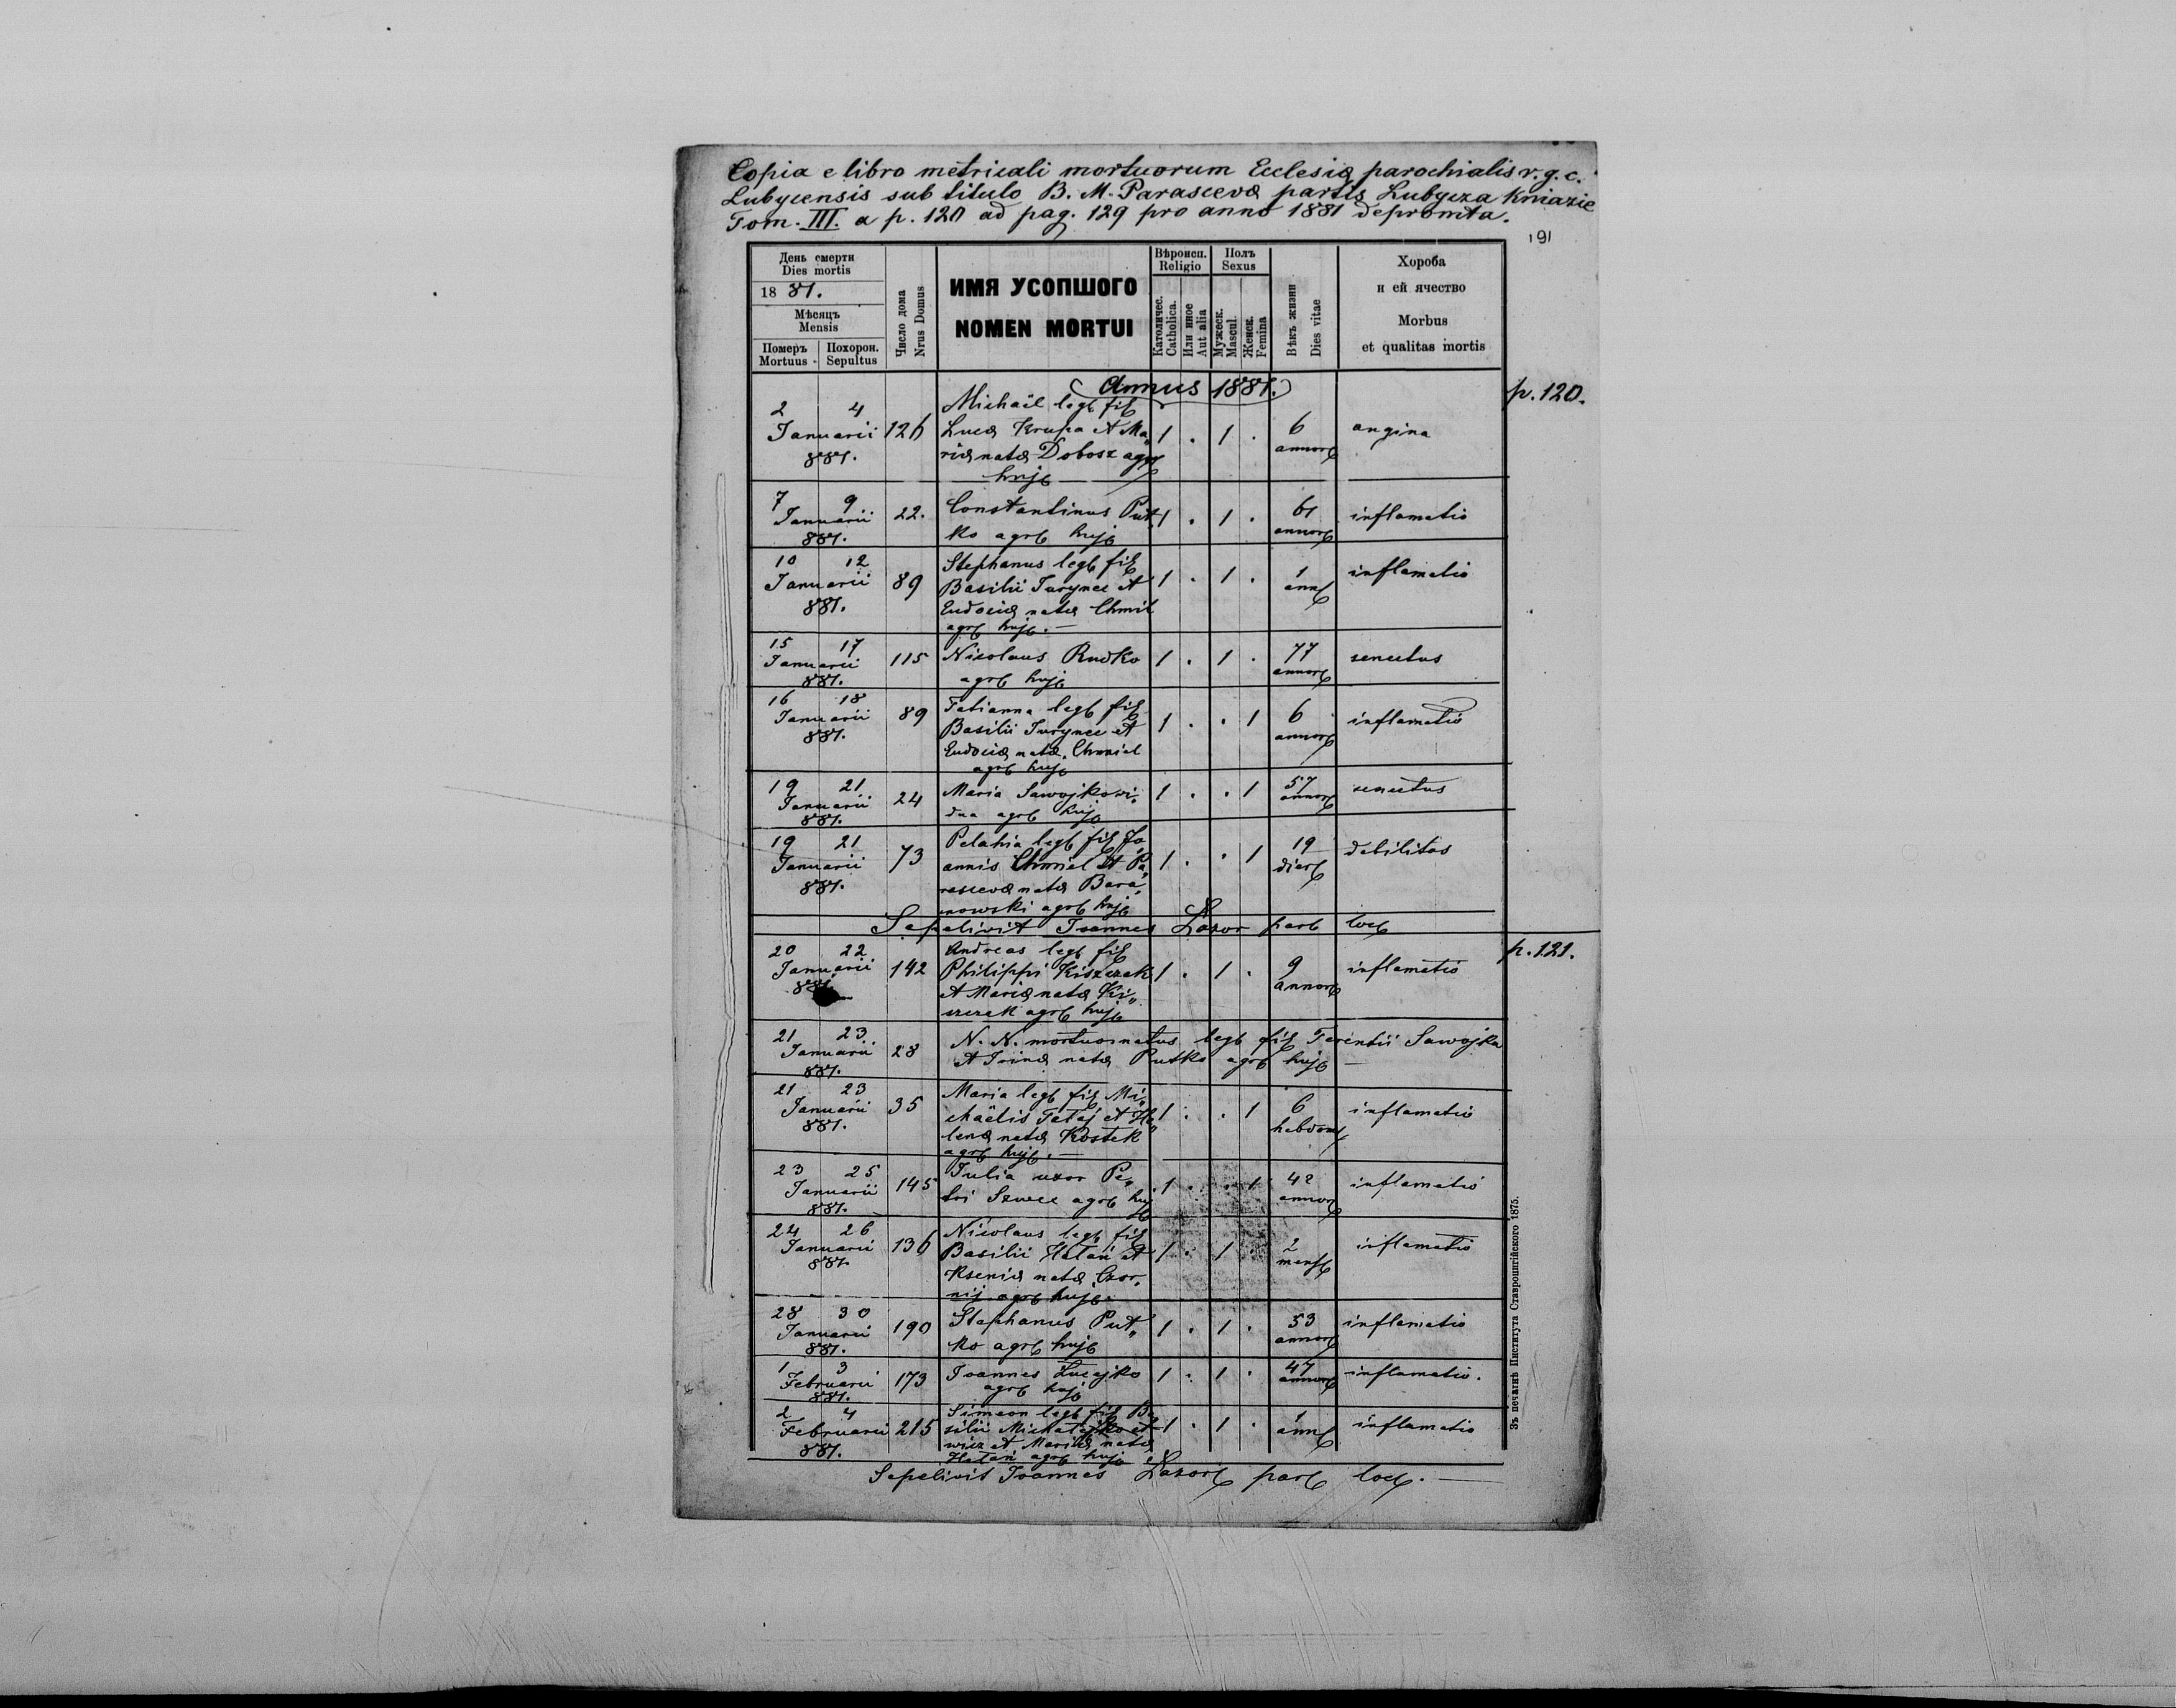 Copia e libro metricali mortuorum Ecclesiæ parochialis r. g. c.
Lubycensis sub titulo B. M. Parascevæ partis Lubycza Kniazie
Tom. III. a p. 120 ad pag. 129 pro anno 1881 depromta.
191
День смерти
Dies mortis
1881.
Мѣсяцъ
Mensis
Померъ Похорон.
Mortuus Sepultus
Число дома
Nrus Domus
ИМЯ УСОПШОГО
NOMEN MORTUI
Вѣроисп.
Religio
Католичес.
Catholica.
Или иное
Aut alia
Полъ
Sexus
Мужеск.
Mascul.
Женск.
Femina
Вѣкъ жизни
Dies vitae
Хороба
и ей ячество
Morbus
et qualitas mortis
Annus 1881.
p. 120.
2 4
Januarii
881.
126
Michaël legt fil
Lucæ Krupa et Ma„
riæ natæ Dobosz agr
huj
1 . 1 .
6
annor
angina
7 9
Januarii
881.
22.
Constantinus Put„
ko agr huj
1 . 1 .
61
annor
inflamatio
10 12
Januarii
881.
89
Stephanus legt fil
Basilii Jurynec et
Eudociæ natæ Chmil
agr huj. —
1 . 1 .
1
ann
inflamatio
15 17
Januarii
881.
115
Nicolaus Rudko
agr huj
1 . 1 .
77
annor
senectus
16 18
Januarii
881.
89
Tatianna legt fil
Basilii Jurynec et
Eudociæ natæ Chmiel
agr huj
1 . . 1
6
annor
inflamatio
19 21
Januarii
881.
24
Maria Sawojkowi„
dua agr huj
1 . . 1
57
annor
senectus
19 21
Januarii
881.
73
Pelahia legt fil Jo„
annis Chmiel et Pa„
rascevæ natæ Bara„
nowski agr huj
1 . . 1
19
dier
debilitas
Sepelivit Joannes Lazor par loc
p. 121.
20 22
Januarii
881.
142
Andreas legt fil
Philippi Kiszczak
et Mariæ natæ Ki„
szczak agr huj
1 . 1 .
9
annor
inflamatio
21 23
Januarii
881.
28
N. N. mortuosnatus legt fil Terentii Sawojka
et Irinæ natæ Putko agr huj —
21 23
Januarii
881.
35
Maria legt fil Mi„
chaëlis Fataj et He„
lenæ natæ Kostek
agr huj. —
1 . . 1
6
hebdom
inflamatio
23 25
Januarii
881.
145
Julia uxor Pe„
tri Szwec agr huj
1 . . 1
42
annor
inflamatio
24 26
Januarii
881.
136
Nicolaus legt fil
Basilii Hałań et
Kseniæ natæ Czor„
nij agr huj.
1 . 1 .
2
mens
inflamatio
28 30
Januarii
881.
190
Stephanus Put„
ko agr huj
1 . 1 .
53
annor
inflamatio
1 3
Februarii
881.
173
Joannes Łucejko
agr huj
1 . 1 .
47
annor
inflamatio.
2 4
Februarii
881.
215
Simeon legt fil Ba„
silii
wicz et Mariæ natæ
Hałań agr huj
1 . 1 .
1
ann
inflamatio
Sepelivit Joannes Lazor par loc. —
Зъ печатнѣ Института Ставропигійского 1875.